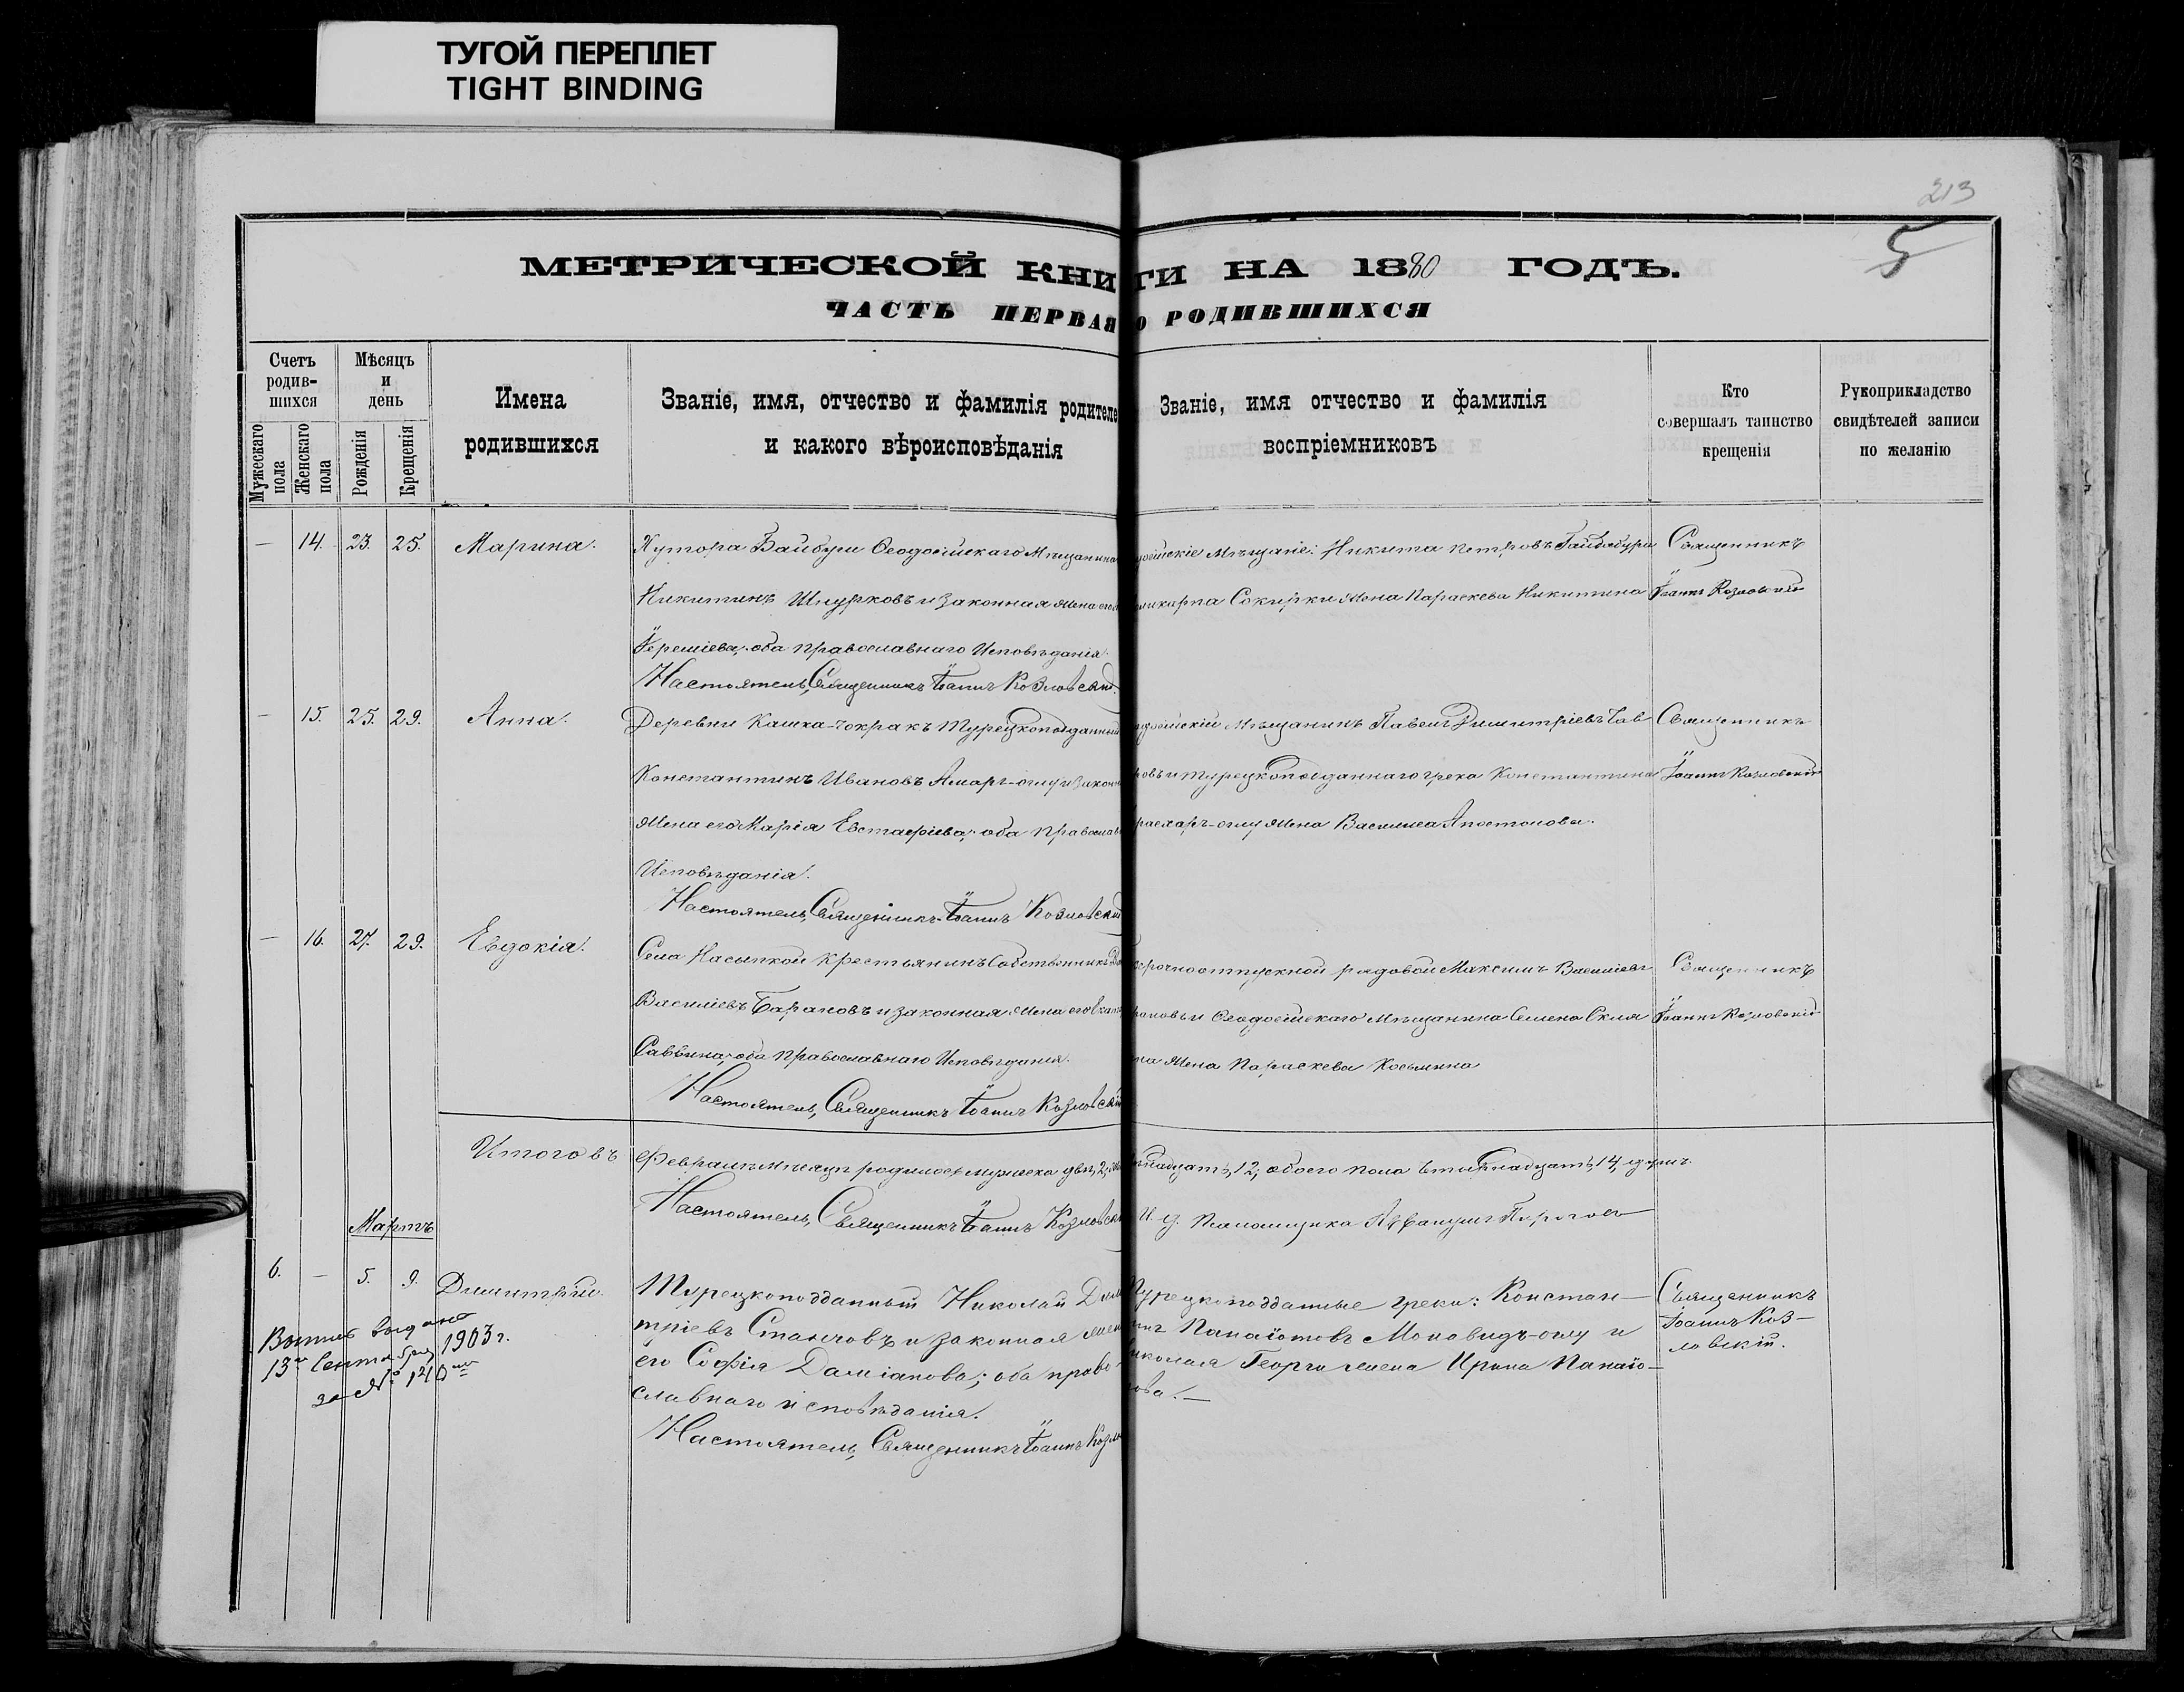 ТУГОЙ ПЕРЕПЛЕТ
TIGHT BINDING
213
5
МЕТРИЧЕСКОЙ КНИГИ НА 1880 ГОДЪ.
ЧАСТЬ ПЕРВАЯ О РОДИВШИХСЯ
Счетъ
родив-
шихся
Мужескаго
пола
Женскаго
пола
Мѣсяцъ
и
день
Рожденія
Крещенія
Имена
родившихся
Званіе, имя, отчество и фамилія родителе
и какого вѣроисповѣданія
Званіе, имя отчество и фамилія
воспріемниковъ
Кто
совершалъ таинство
крещенія
Рукоприкладство
свидѣтелей записи
по желанію
— 14. 23. 25. Марина.
Хутора Байбуги Ѳеодосійскаго Мѣщанина
Никитинъ Шнурковъ и законная жена его
оба Православнаго Исповѣданія.
Настоятель, Священникъ Іоаннъ Козловскій.
досійскіе Мѣщане: Никита Петровъ
ликарпа Сокирки жена Параскева Никитина
Священникъ
Іоаннъ Козловскій
— 15. 25. 29. Анна.
Деревни Кашка-Чокракъ Турецкоподданный
Константинъ Ивановъ Амарг-оглу и закон
жена его Марія Евстафіева; оба православ
Исповѣданія.
Настоятель, Священникъ Іоаннъ Козловскій
одосійскій Мѣщанинъ Павелъ Димитріевъ Сав
ровъ и турецкоподданнаго грека Константина
оглу жена Василиса Апостолова.
Священникъ
Іоаннъ Козловскій
— 16. 27. 29. Евдокія.
Села Насыпкой Крестьянинъ Собственникъ
Василіевъ Барановъ и законная жена его
Саввина, оба Православнаго Исповѣданія.
Настоятель, Священникъ Іоаннъ Козловскій
срочноотпускной рядовой Максимъ Василіевъ
рановъ и Ѳеодосійскаго Мѣщанина Семена Скля
ра жена Параскева Косьмина
Священникъ
Іоаннъ Козловскій
Итого въ Февралѣ мѣсяцѣ родилось мужеска двѣ, 2,
надцать, 12, обоего пола четырнадцать, 14, душъ.
Настоятель, Священникъ Іоаннъ Козловскій
И. д. Псаломщика
Мартъ
6. — 5. 9. Димитрій.
Турецкоподданный Николай Дим
тріевъ Станчовъ и законная жена
его Софія Даміанова; оба право-
славнаго исповѣданія.
Настоятель, Священникъ Іоаннъ Козло
Турецкоподданные греки: Констан-
тинъ Панаіотовъ Моновидъ-оглу и
иколая Георги жена Ирина Панаіо-
това.—
Священникъ
Іоаннъ Коз-
ловскій.
Выпись выдана
13го Сентября 1903 г.
за № 140мъ